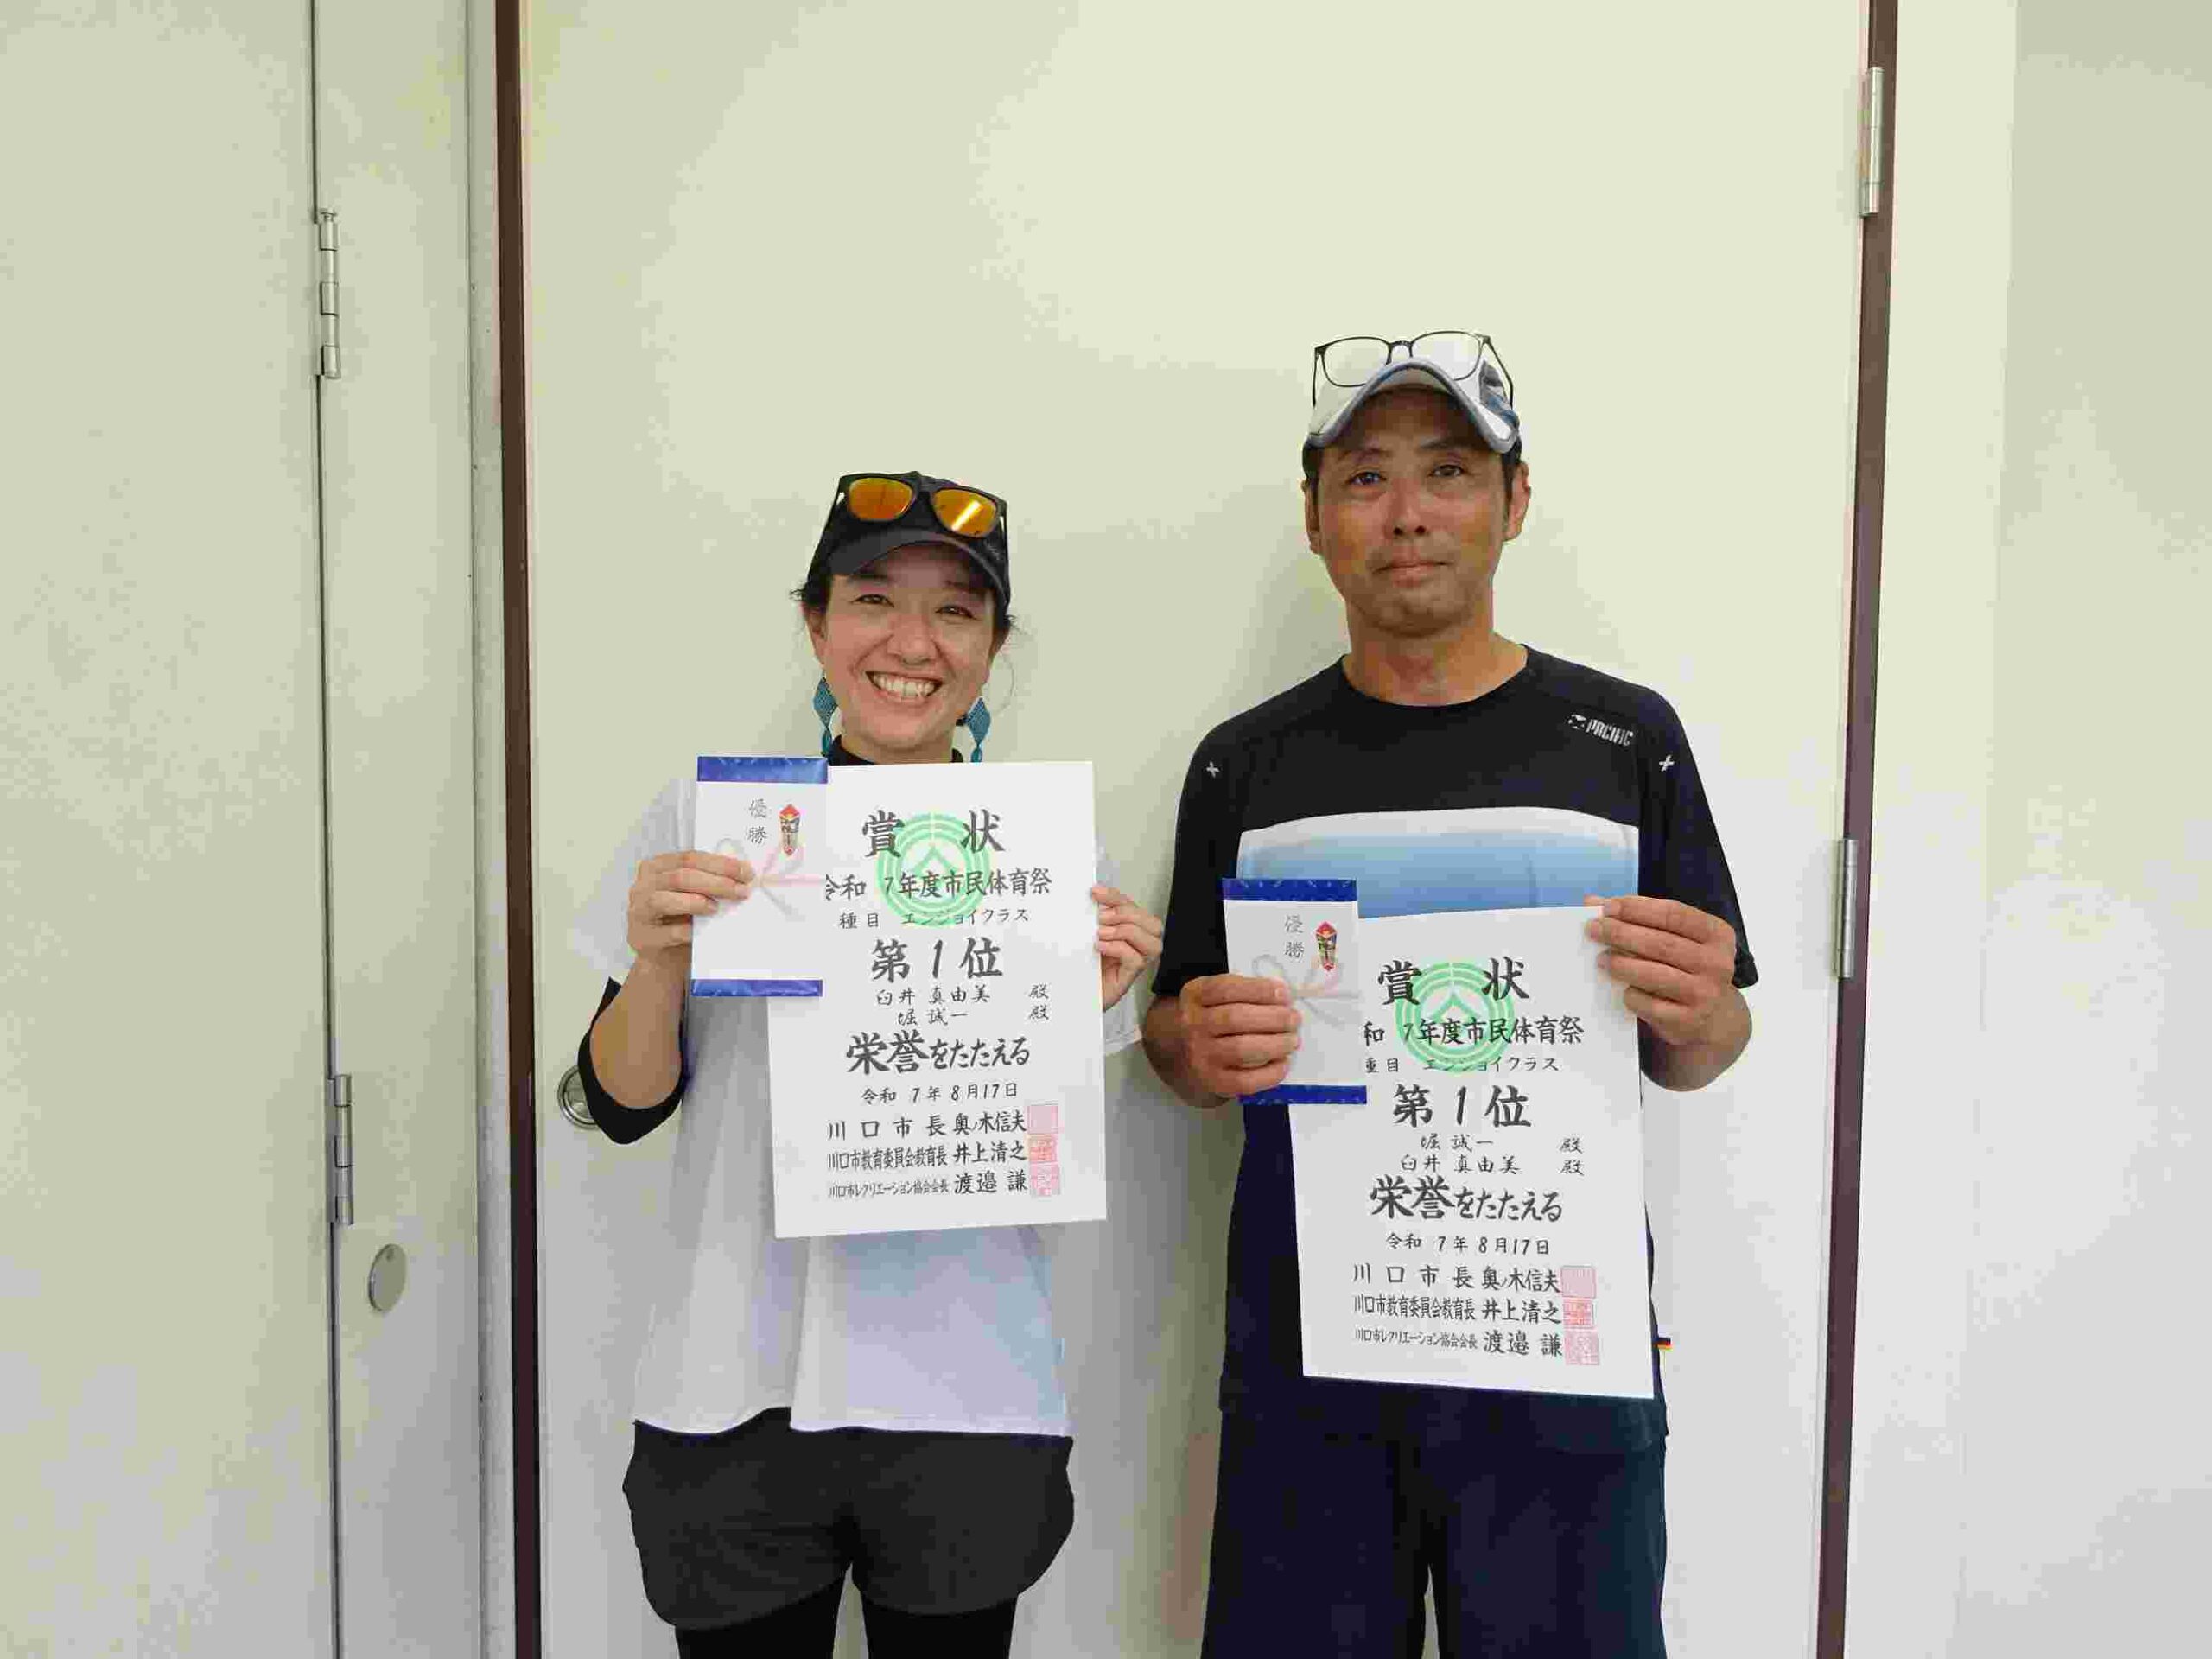 優勝
賞状
令和 7年度市民体育祭
種目 エンジョイクラス
第1位
臼井 真由美 殿
堀 誠一 殿
栄誉をたたえる
令和 7年 8月17日
川口市長 奥ノ木信夫
川口市教育委員会教育長 井上清之
川口市レクリエーション協会会長 渡邉 謙
PACIFIC
優勝
賞状
和 7年度市民体育祭
種目 エンジョイクラス
第1位
堀 誠一 殿
臼井 真由美 殿
栄誉をたたえる
令和 7年 8月17日
川口市長 奥ノ木信夫
川口市教育委員会教育長 井上清之
川口市レクリエーション協会会長 渡邉 謙